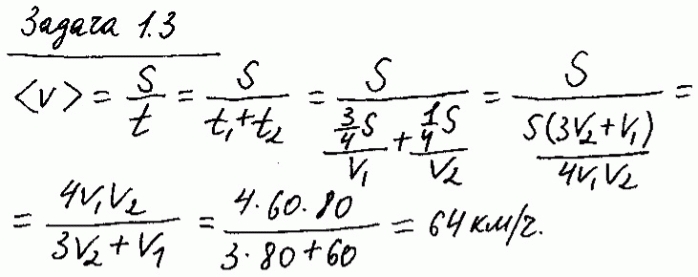 Задача 1.3
<v> = S/t = S/(t₁+t₂) = S/((3/4 S)/V₁ + (1/4 S)/V₂) = S/(S(3V₂+V₁)/(4V₁V₂)) =
= 4V₁V₂/(3V₂+V₁) = 4·60·80/(3·80+60) = 64 км/ч.